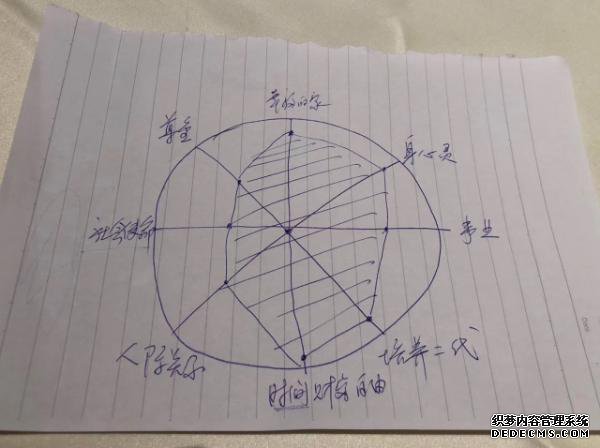 幸福的家
尊重
身心灵
事业
人际关系
培养二代
时间财富自由
织梦内容管理系统
DEDECMS.COM